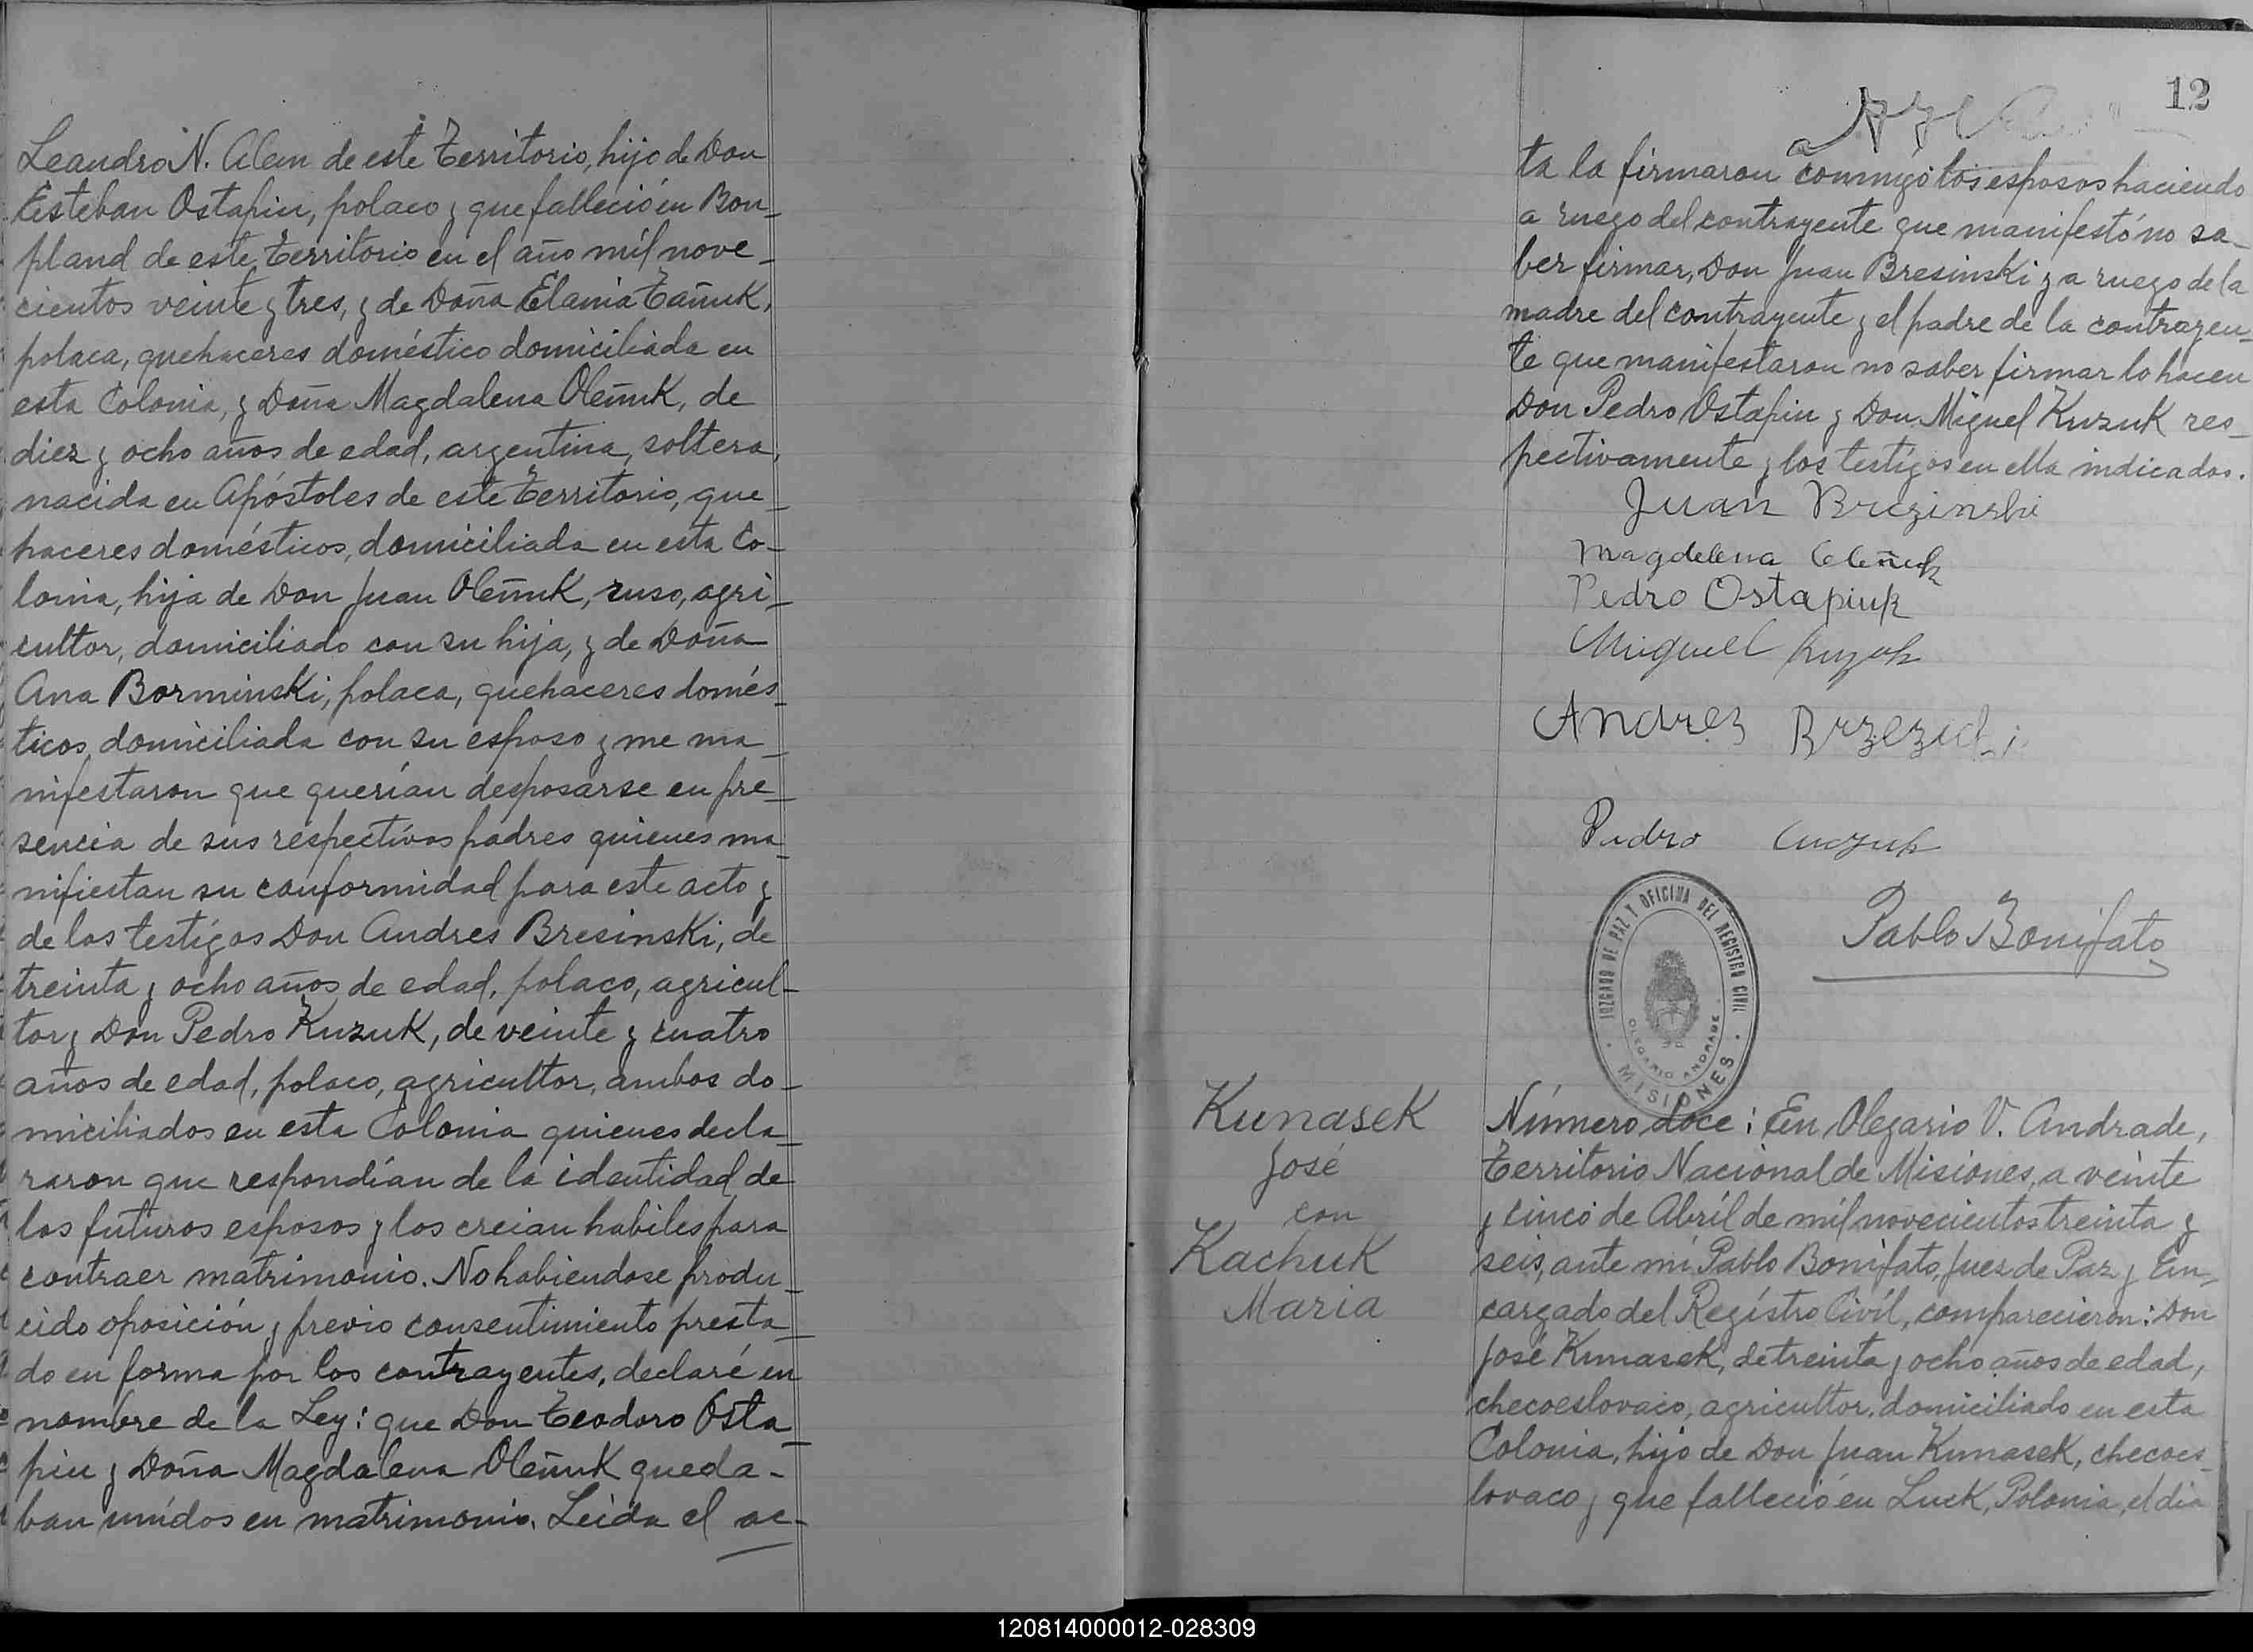 Leandro N. Alem de este Territorio, hijo de Don
Esteban Ostapiu, polaco y que falleció en Bon-
pland de este Territorio en el año mil nove-
cientos veinte y tres, y de Doña Elania Tañuk,
polaca, quehaceres doméstico domiciliada en
esta Colonia, y Doña Magdalena Oleñuk, de
diez y ocho años de edad, argentina, soltera,
nacida en Apóstoles de este Territorio, que-
haceres domésticos, domiciliada en esta Co-
lonia, hija de Don Juan Oleñuk, ruso, agri-
cultor, domiciliado con su hija, y de Doña
Ana Borminski, polaca, quehaceres domés-
ticos, domiciliada con su esposo y me ma-
nifestaron que querían desposarse en pre-
sencia de sus respectivos padres quienes ma-
nifiestan su conformidad para este acto y
de los testigos Don Andres Bresinski, de
treinta y ocho años de edad, polaco, agricul-
tor y Don Pedro Kuzuk, de veinte y cuatro
años de edad, polaco, agricultor, ambos do-
miciliados en esta Colonia quienes decla-
raron que respondían de la identidad de
los futuros esposos y los creian habiles para
contraer matrimonio. No habiendose produ-
cido oposición y previo consentimiento presta-
do en forma por los contrayentes, declaré en
nombre de la Ley: que Don Teodoro Osta-
piu y Doña Magdalena Oleñuk queda-
ban unídos en matrimonio. Leida el ac-
12
ta la firmaron conmigo los esposos haciendo
a ruego del contrayente que manifestó no sa-
ber firmar, Don Juan Bresinski y a ruego de la
madre del contrayente y el padre de la contrayen-
te que manifestaron no saber firmar lo hacen
Don Pedro Ostapiu y Don Miguel Kuzuk res-
pectivamente y los testigos en ella indicados.
Juan Brezinski
Magdelena Oleñuk
Pedro Ostapiuk
Miguel Kuzuk
Andrez
Pedro Cuczuk
Pablo Bonifato
JUZGADO DE PAZ Y OFICINA DEL REGISTRO CIVIL
OLEGARIO ANDRADE
MISIONES
Kunasek
José
con
Kachuk
Maria
Número doce: En Olegario V. Andrade,
Territorio Nacional de Misiones, a veinte
y cinco de Abríl de mil novecientos treinta y
seis, ante mí Pablo Bonifato, Juez de Paz y En-
cargado del Regístro Civíl, comparecieron: Don
José Kunasek, de treinta y ocho años de edad,
checoeslovaco, agricultor, domiciliado en esta
Colonia, hijo de Don Juan Kunasek, checoes-
lovaco y que falleció en Luck, Polonia, el dia
120814000012-028309